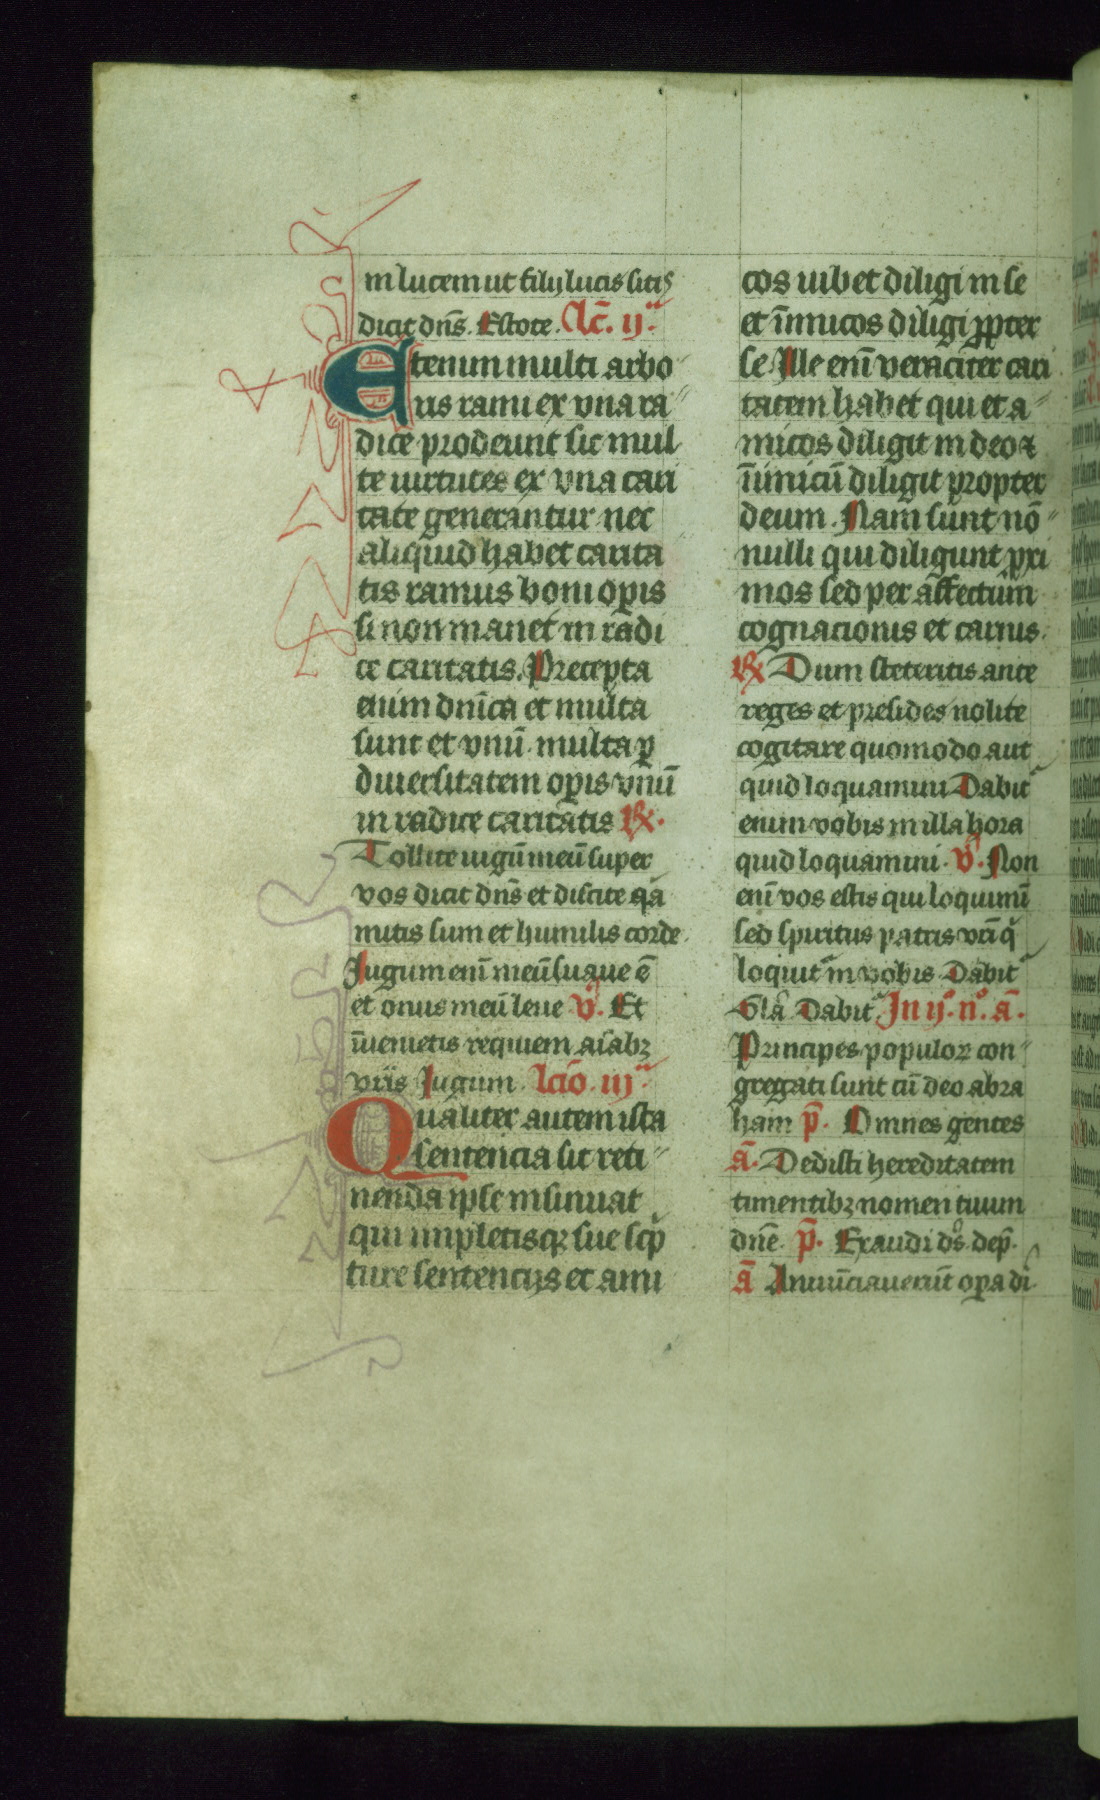 in lucem ut filij lucis sitis
dicit dn̄s. Estote. Lc̄. ij.ª
Etenim multi arbo
ris rami ex vna ra
dice prodeunt sic mul
te uirtutes ex vna cari
tate generantur nec
aliquid habet carita
tis ramus boni op̄is
si non manet in radi
ce caritatis. Precepta
enim dn̄ica et multa
sunt et vnū. multa ꝑ
diuersitatem op̄is vnū
in radice caritatis ℟.
Tollite iugū meū super
vos dicit dn̄s et discite q̄a
mitis sum et humilis corde.
Jugum enī meū suaue ē
et onus meū leue v̊. Et
īuenietis requiem aīabꝫ
vr̄is Jugum. lcīo. iij.ª
Qualiter autem ista
sentencia sit reti
nenda ipse insinuat
qui impletisqꝫ sue scͥp
ture sentencijs et ami
cos iubet diligi in se
et īnimicos diligi ꝓpter
se. Ille enī veraciter cari
tatem habet qui et a
micos diligit in deo ⁊
īimicū diligit propter
deum. Nam sunt nō
nulli qui diligunt ꝓxi
mos sed per affectum
cognacionis et carnis.
℟ Dum steteritis ante
reges et presides nolite
cogitare quomodo aut
quid loquamini Dabit᷑
enim vobis in illa hora
quid loquamini. v̊. Non
enī vos estis qui loquimī
sed spiritus patris vr̄i q̇
loquit᷑ in vobis. Dabit᷑
Gl̄a Dabit᷑. Jn ij.º n.º ā.
Principes populoꝝ con
gregati sunt cū deo abra
ham p̄. Omnes gentes
ā. Dedisti hereditatem
timentibꝫ nomen tuum
dn̄e. p̄. Exaudi ds̄. dep̄.
ā Annūciauerūt oꝑa dī